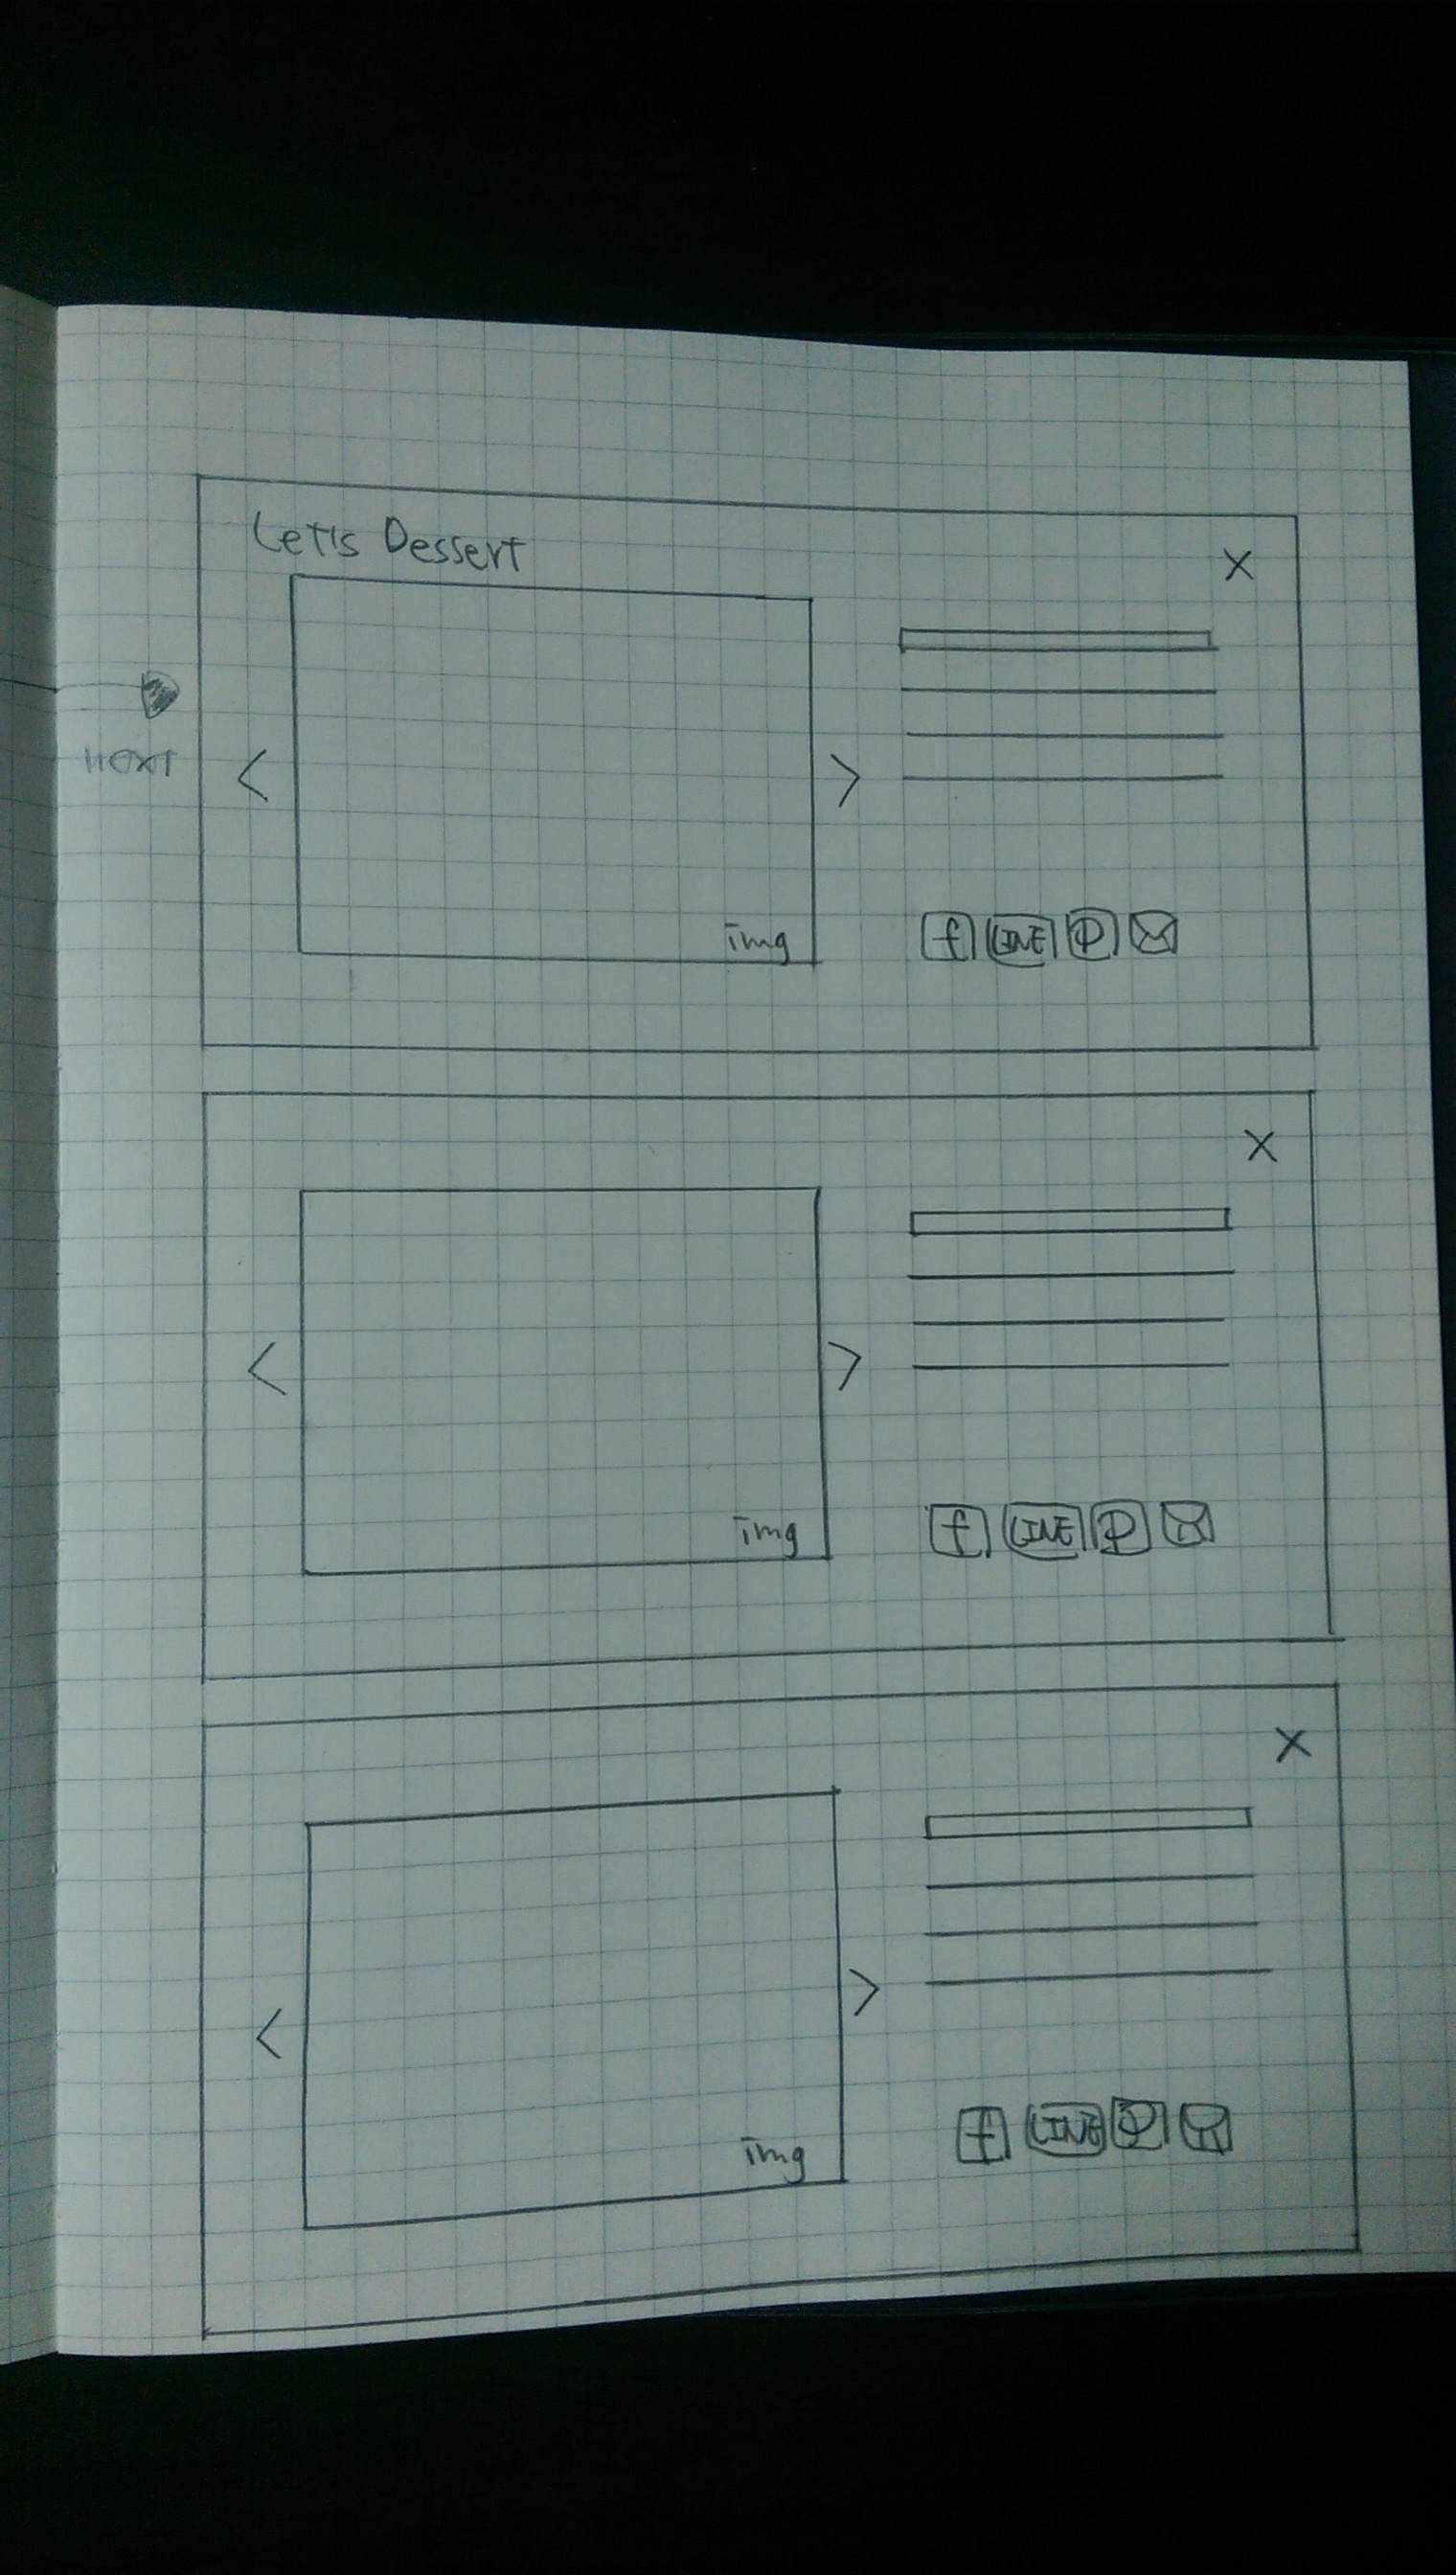 Let's Dessert
X
next
< >
img
f LINE P
X
< >
img
f LINE P
X
< >
img
f LINE P